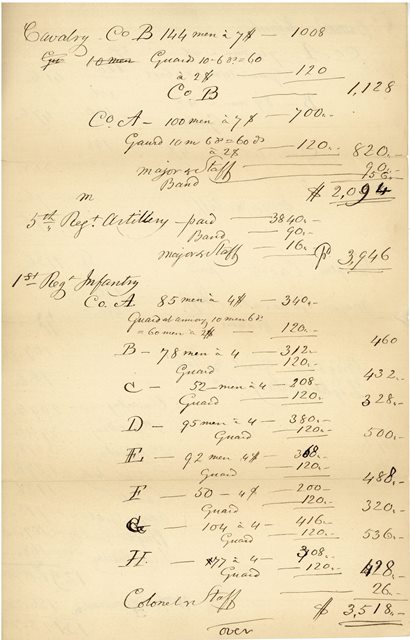 Cavalry. Co B 144 men à 7$ — 1008
10 men Guard 10-6ds=60
à 2$ — 120
Co B — 1,128
Co A — 100 men à 7$ — 700.-
Gaurd 10 m 6ds=60ds
à 2$ — 120.- 820.-
major & Staff — 90.-
Band 56.-
$ 2,094
m
5th Regt Artillery — paid — 3840.-
Band — 90.-
major & Staff — 16.-
3,946
1st Regt Infantry
Co. A 85 men à 4$ — 340.-
Guard at armory, 10 men 6ds
= 60 men à 2$ — 120.- 460
B — 78 men à 4 — 312.-
Guard 120.- 432.-
C — 52 men à 4 — 208.-
Guard 120.- 328.-
D — 95 men à 4 — 380.-
Guard 120.- 500.-
E — 92 men 4$ — 368.-
Guard — 120.- 488.-
F — 50 — 4$ — 200.-
Guard 120.- 320.-
G — 104 à 4 — 416.-
Guard — 120.- 536.-
H. — 77 à 4 — 308.-
Guard — 120.- 428.-
Colonel & Staff 26.-
$ 3,518.-
over